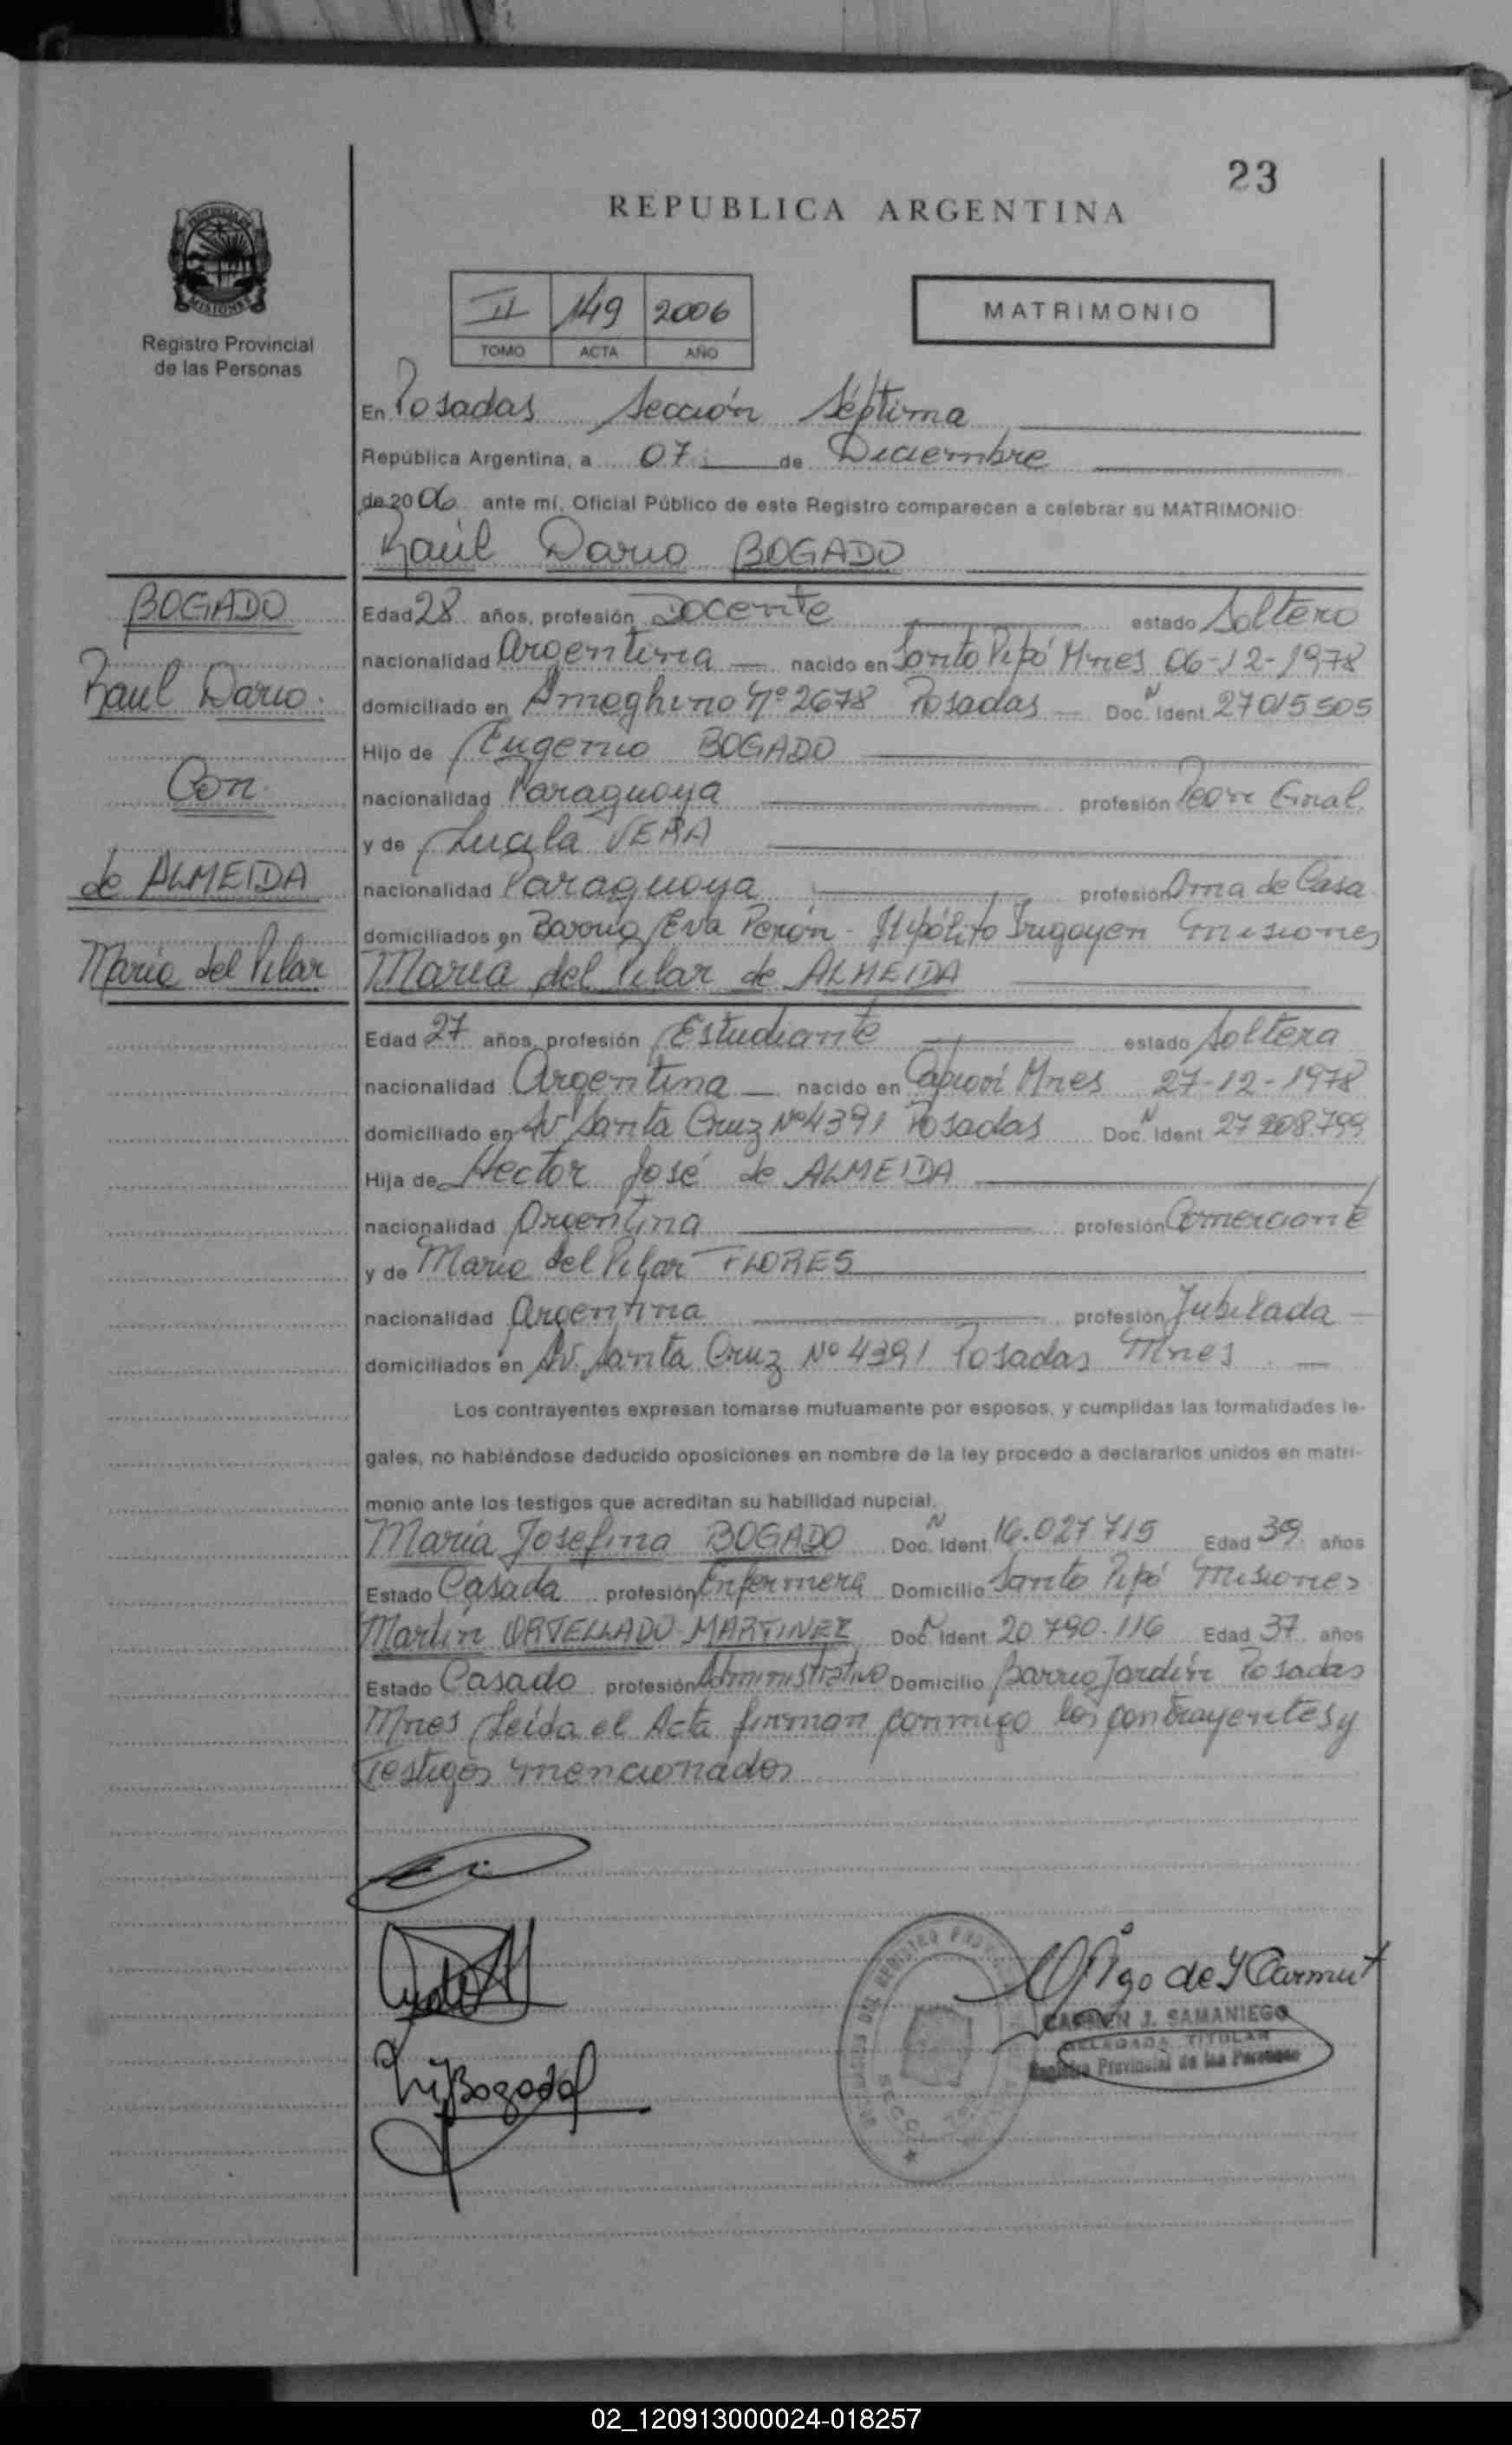 23
REPUBLICA ARGENTINA
PROVINCIA DE
MISIONES
Registro Provincial
de las Personas
II 149 2006
TOMO ACTA AÑO
MATRIMONIO
En Posadas Sección Séptima
República Argentina, a 07 de Diciembre
de 2006 ante mí, Oficial Público de este Registro comparecen a celebrar su MATRIMONIO
Raúl Dario BOGADO
BOGADO
Raul Dario
Con
de ALMEIDA
Maria del Pilar
Edad 28 años, profesión Docente estado Soltero
nacionalidad Argentina nacido en Santo Pipó Mnes 06-12-1978
domiciliado en Ameghino Nº 2678 Posadas Doc. N Ident 27015505
Hijo de Eugenio BOGADO
nacionalidad Paraguaya profesión Peon Gnal
y de VERA
nacionalidad Paraguaya profesión Ama de Casa
domiciliados en Barrio Eva Perón - Hipólito Irigoyen Misiones
María del Pilar de ALMEIDA
Edad 27 años, profesión Estudiante estado Soltera
nacionalidad Argentina nacido en Capioví Mnes 27-12-1978
domiciliado en Av Santa Cruz Nº 4391 Posadas Doc. N Ident 27208.799
Hija de Hector José de ALMEIDA
nacionalidad Argentina profesión Comerciante
y de Maria del Pilar FLORES
nacionalidad Argentina profesión Jubilada
domiciliados en Av. Santa Cruz Nº 4391 Posadas Mnes
Los contrayentes expresan tomarse mutuamente por esposos, y cumplidas las formalidades le-
gales, no habiéndose deducido oposiciones en nombre de la ley procedo a declararlos unidos en matri-
monio ante los testigos que acreditan su habilidad nupcial.
María Josefina BOGADO Doc. N Ident 16.027.715 Edad 39 años
Estado Casada profesión Enfermera Domicilio Santo Pipó Misiones
Martín ORTELLADO MARTINEZ Doc. N Ident 20.790.116 Edad 37 años
Estado Casado profesión Administrativo Domicilio Barrio Jardín Posadas
Mnes Leída el Acta firman conmigo los contrayentes y
Testigos mencionados
Bogado
de Carmen
CARMEN J. SAMANIEGO
DELEGADA TITULAR
Registro Provincial de las Personas
02_120913000024-018257